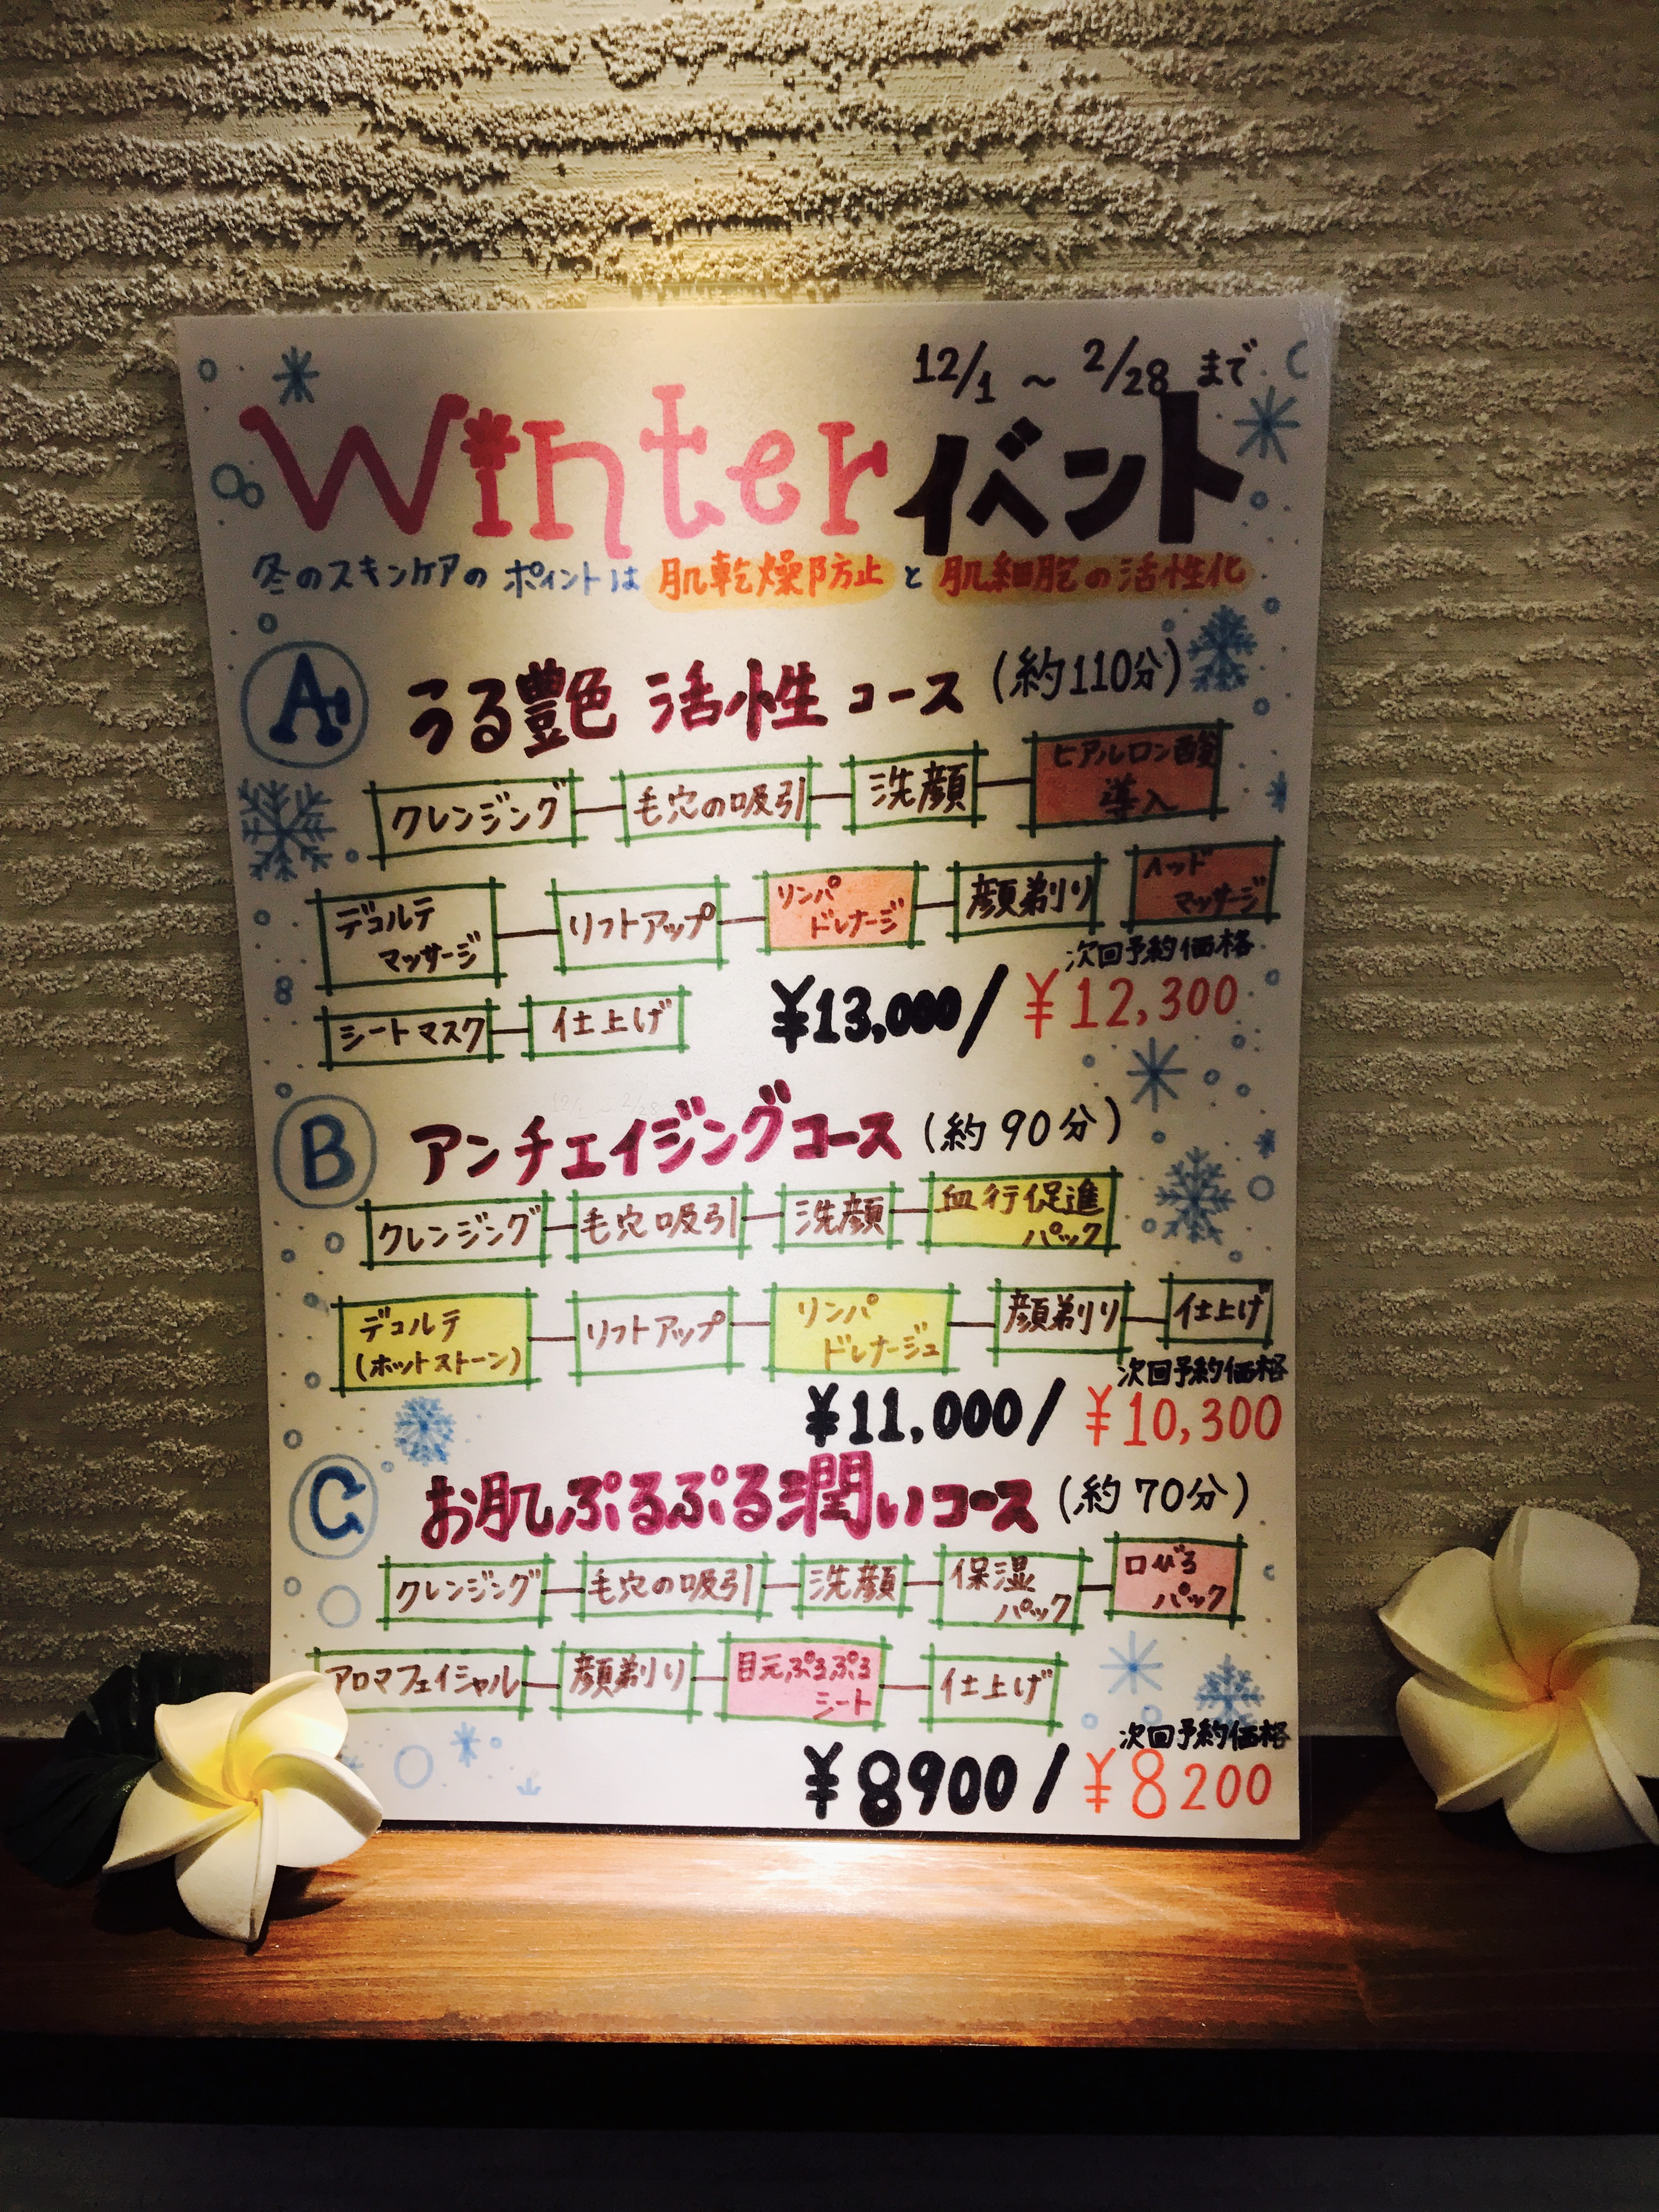 12/1 ～ 2/28 まで
Winterイベント
冬のスキンケアの ポイントは 肌乾燥防止 と 肌細胞の活性化
A うる艶 活性 コース (約110分)
クレンジング 毛穴の吸引 洗顔 ヒアルロン酸 導入
デコルテ マッサージ リフトアップ リンパ ドレナージ 顔剃り ヘッド マッサージ
次回予約価格
シートマスク 仕上げ ¥13,000/ ¥12,300
B アンチエイジングコース (約90分)
クレンジング 毛穴吸引 洗顔 血行促進 パック
デコルテ (ホットストーン) リフトアップ リンパ ドレナージュ 顔剃り 仕上げ
次回予約価格
¥11,000/ ¥10,300
C お肌ぷるぷる潤いコース (約70分)
クレンジング 毛穴の吸引 洗顔 保湿 パック 口びる パック
アロマフェイシャル 顔剃り 目元ぷるぷる シート 仕上げ
次回予約価格
¥8900/ ¥8200